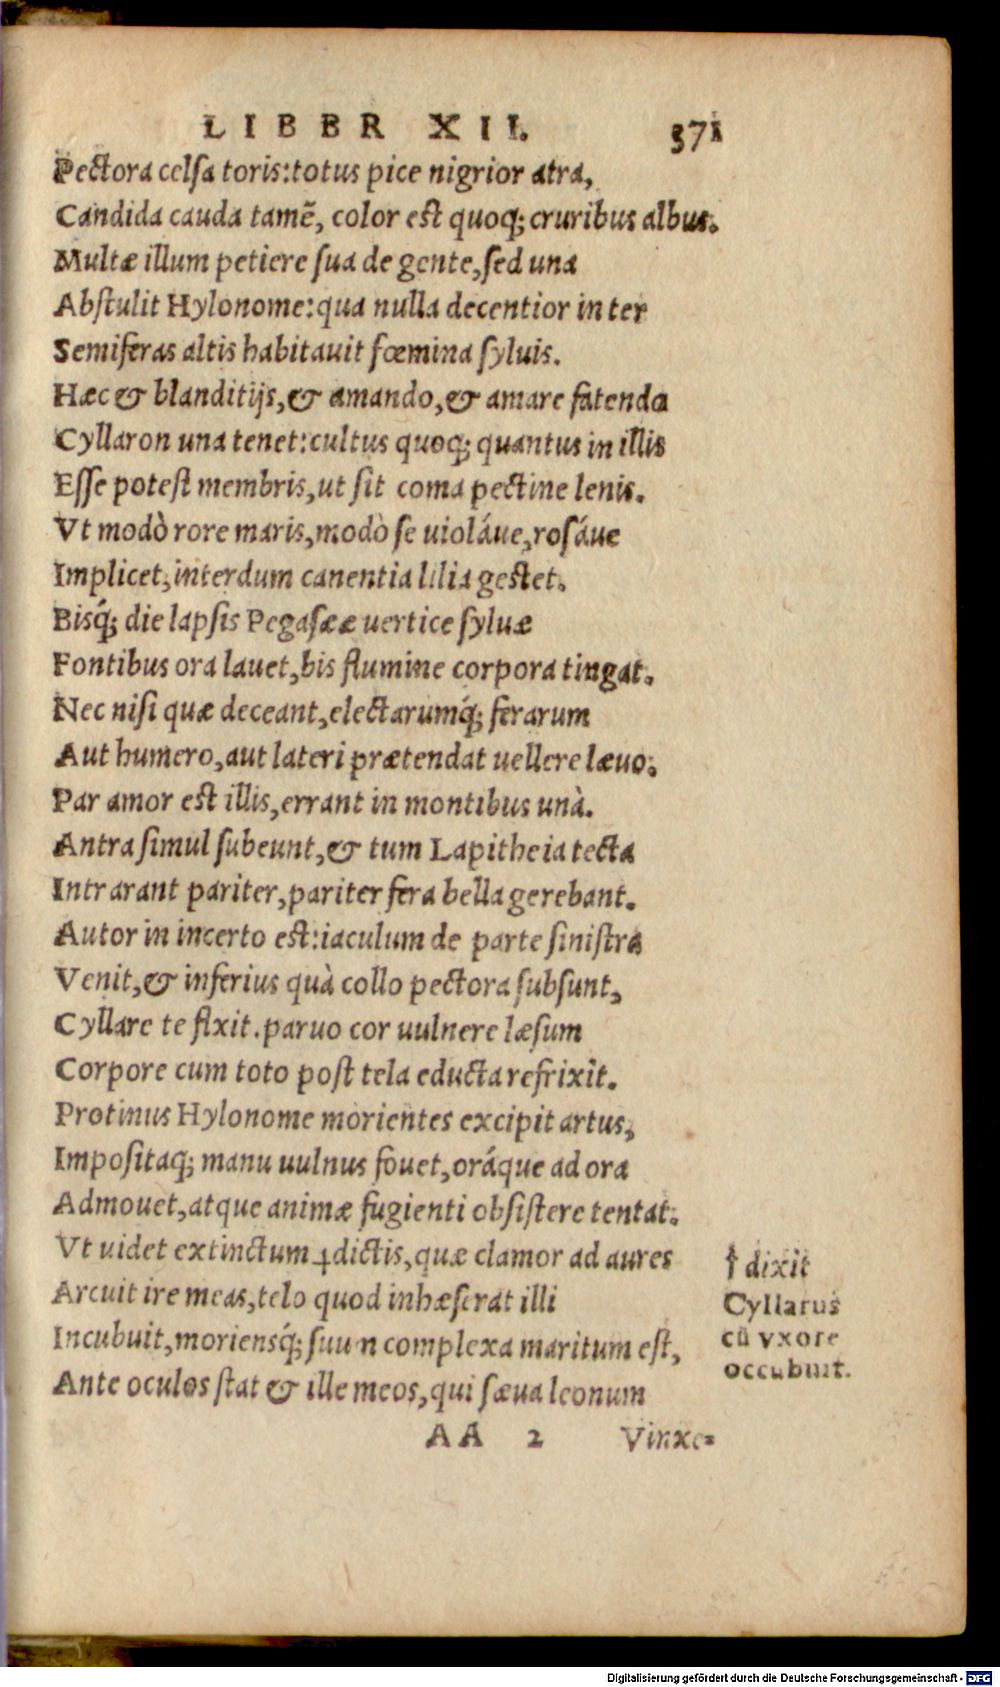 LIBBR XII. 371
Pectora celſa toris:totus pice nigrior atra,
Candida cauda tamē, color est quoq; cruribus albus.
Multæ illum petiere ſua de gente,ſed una
Abſtulit Hylonome:qua nulla decentior inter
Semiferas altis habitauit fœmina ſyluis.
Hæc & blanditijs,& amando,& amare fatenda
Cyllaron una tenet:cultus quoq; quantus in illis
Eſſe potest membris,ut ſit coma pectine lenis.
Vt modò rore maris,modò ſe uioláue,roſáue
Implicet,interdum canentia lilia gestet.
Bisq́; die lapſis Pegaſææ uertice ſyluæ
Fontibus ora lauet,bis flumine corpora tingat.
Nec niſi quæ deceant,electarumq́; ferarum
Aut humero,aut lateri prætendat uellere læuo.
Par amor est illis,errant in montibus unà.
Antra ſimul ſubeunt,& tum Lapitheia tecta
Intrarant pariter,pariter fera bella gerebant.
Autor in incerto est:iaculum de parte ſiniſtra
Venit,& inferius quà collo pectora ſubſunt,
Cyllare te fixit.paruo cor uulnere læſum
Corpore cum toto poſt tela educta refrixit.
Protinus Hylonome morientes excipit artus,
Impoſitaq; manu uulnus fouet,oráque ad ora
Admouet,atque animæ fugienti obſiſtere tentat.
Vt uidet extinctum ┼dictis,quæ clamor ad aures
Arcuit ire meas,telo quod inhæſerat illi
Incubuit,moriensq́; ſuum complexa maritum est,
Ante oculos ſtat & ille meos,qui ſæua leonum
AA 2 Vinxe=
ƚ dixit
Cyllarus
cū vxore
occubuit.
Digitalisierung gefördert durch die Deutsche Forschungsgemeinschaft - DFG